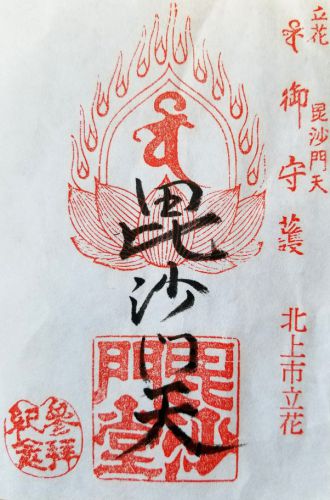 立花
毘沙門天
御守護
北上市立花
毘沙門天
毘沙門堂
參拜
記念